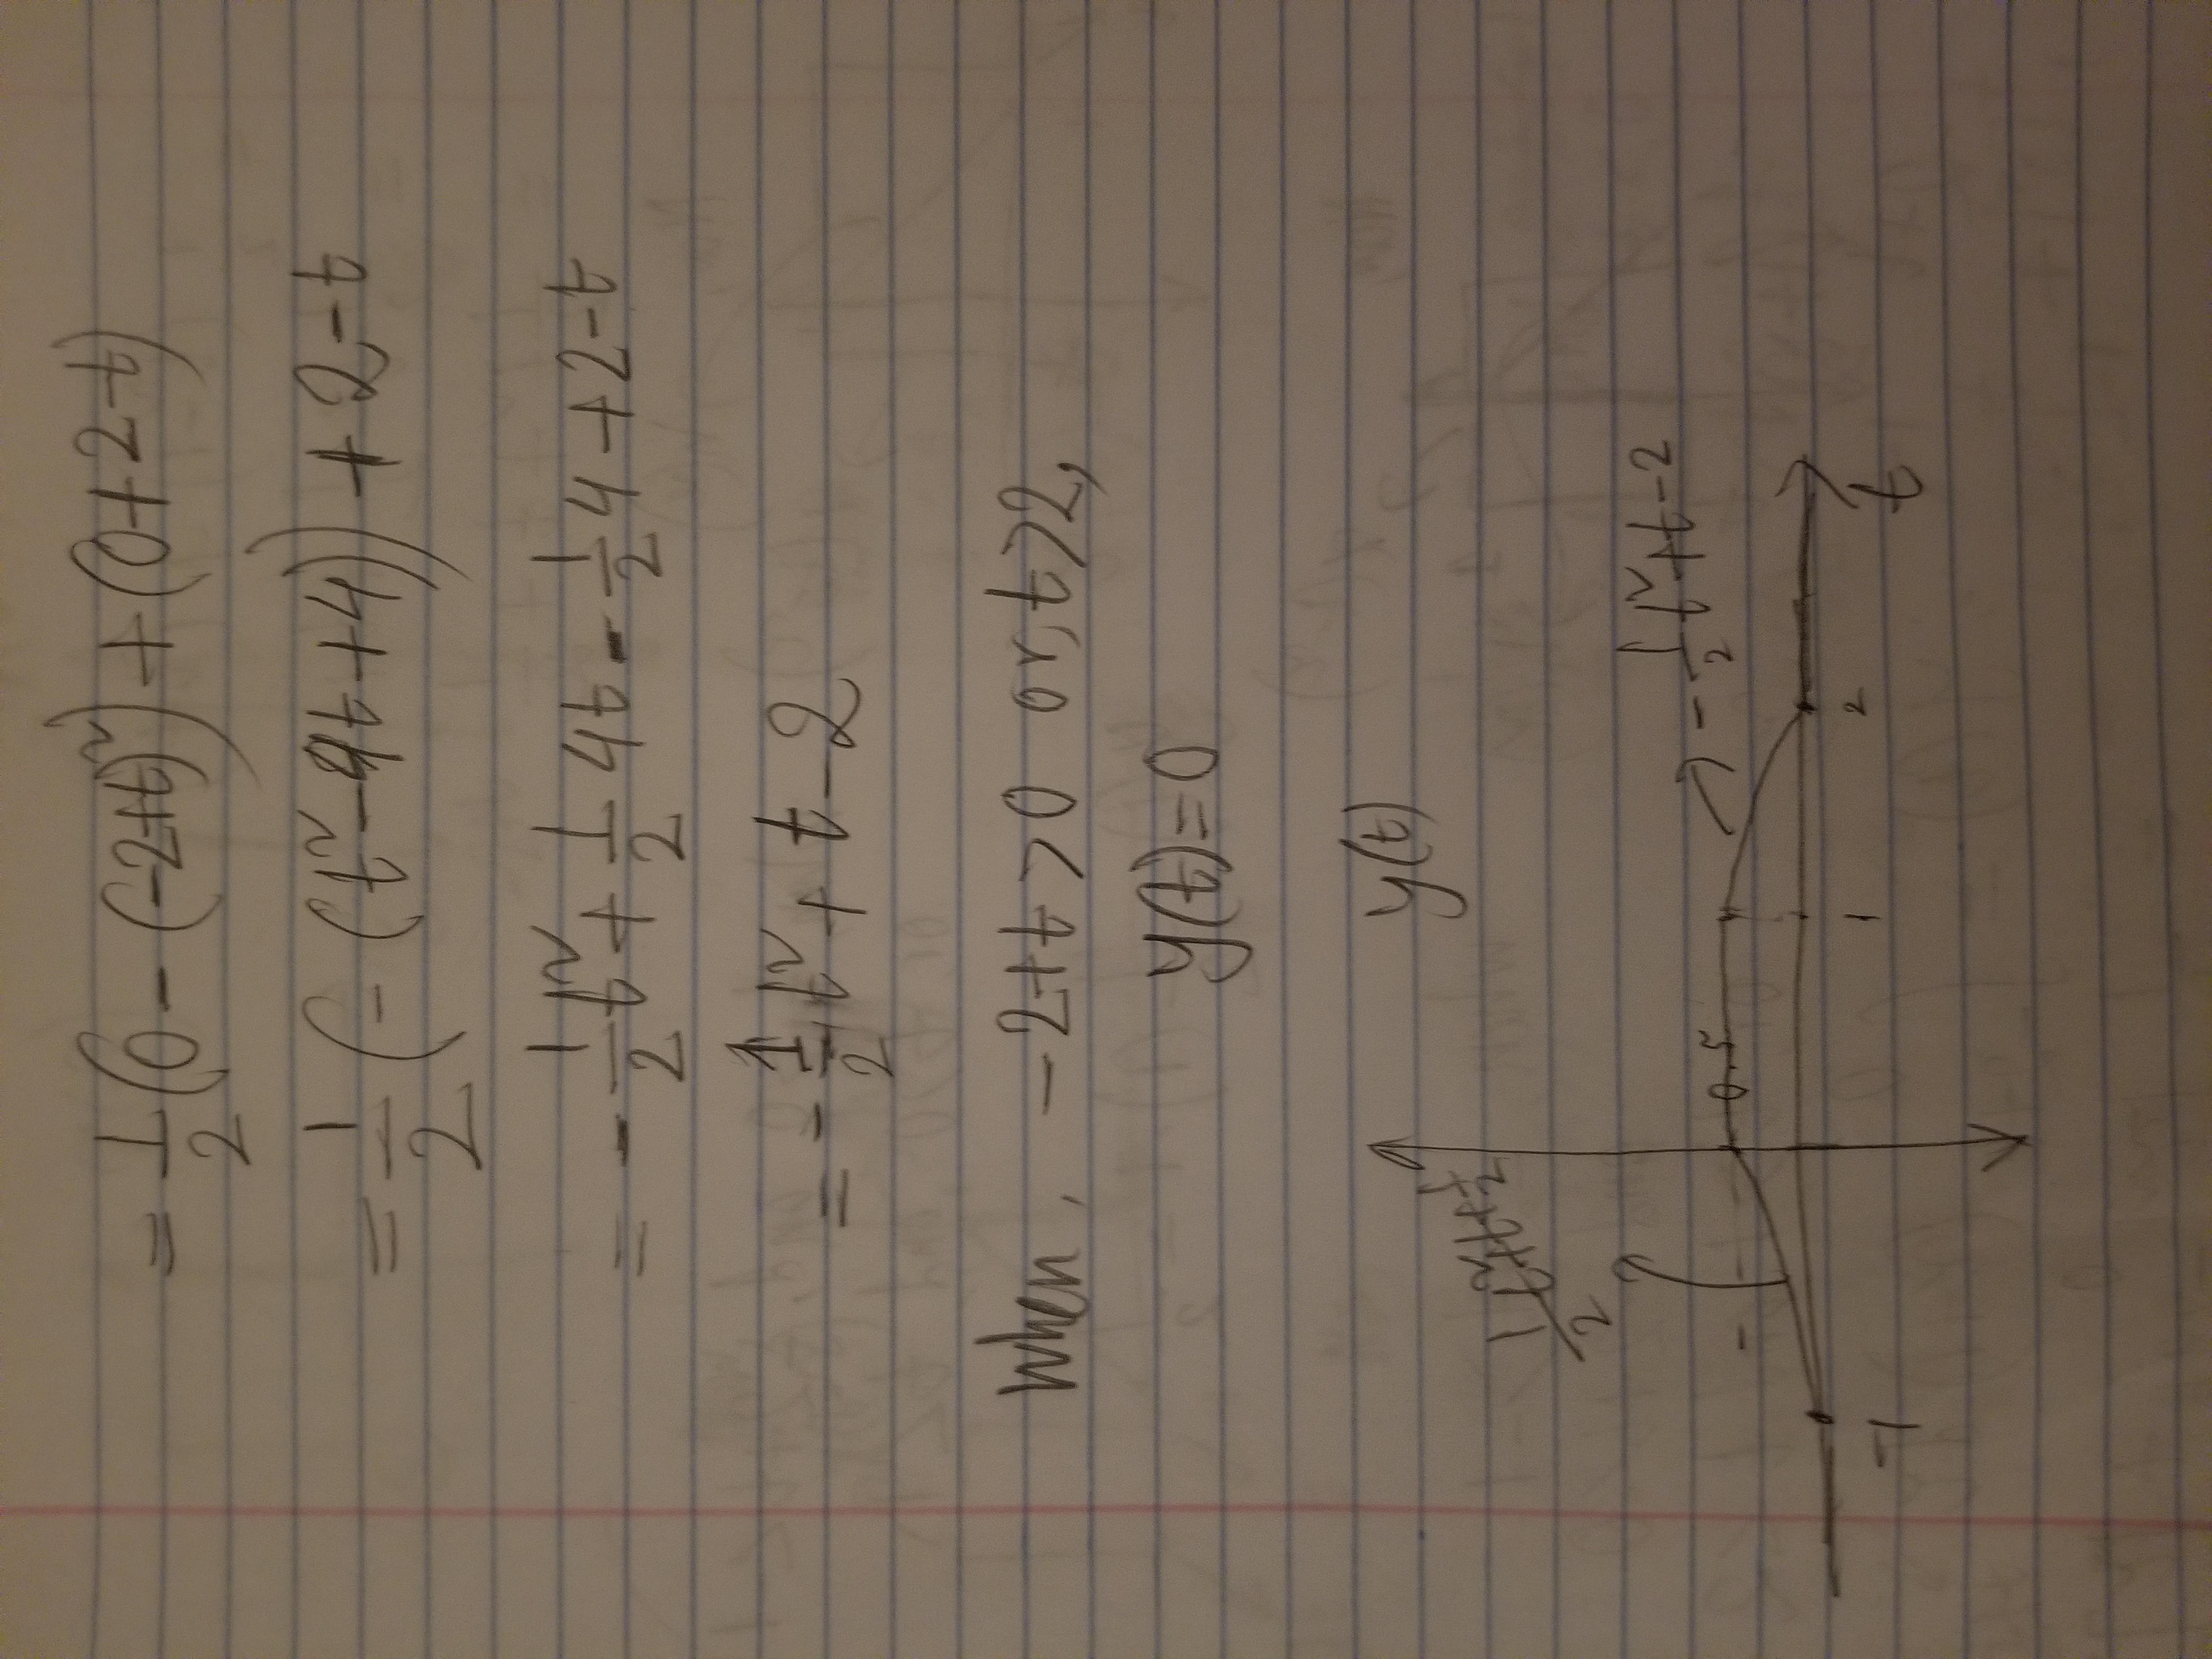 = 1/2 (0 - (-2+t)²) + (0+2-t)
= 1/2 (- (t²-4t+4)) + 2-t
= - 1/2 t² + 1/2 4t - 1/2 4 + 2-t
= - 1/2 t² + t - 2
When, -2+t>0 or, t>2,
y(t)=0
y(t)
1/2 t²+t+1/2
- 1/2 t²+t-2
0.5
-1 1 2 t